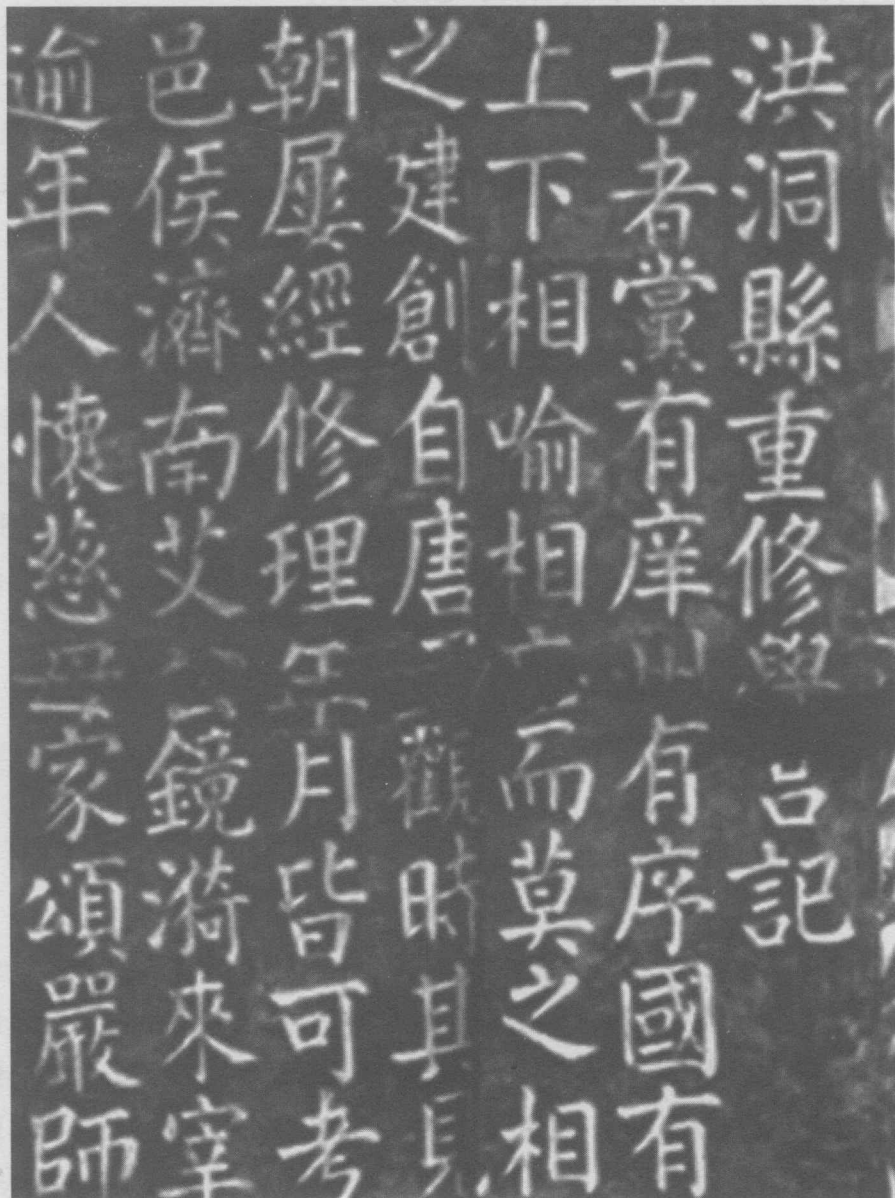 洪洞縣重修記
古者黨有庠州有序國有
上下相喻相而莫之相
之建創自唐觀時其見
朝屢經修理年月皆可考
邑侯濟南艾公鏡漪來宰
逾年人懷慈母家頌嚴師